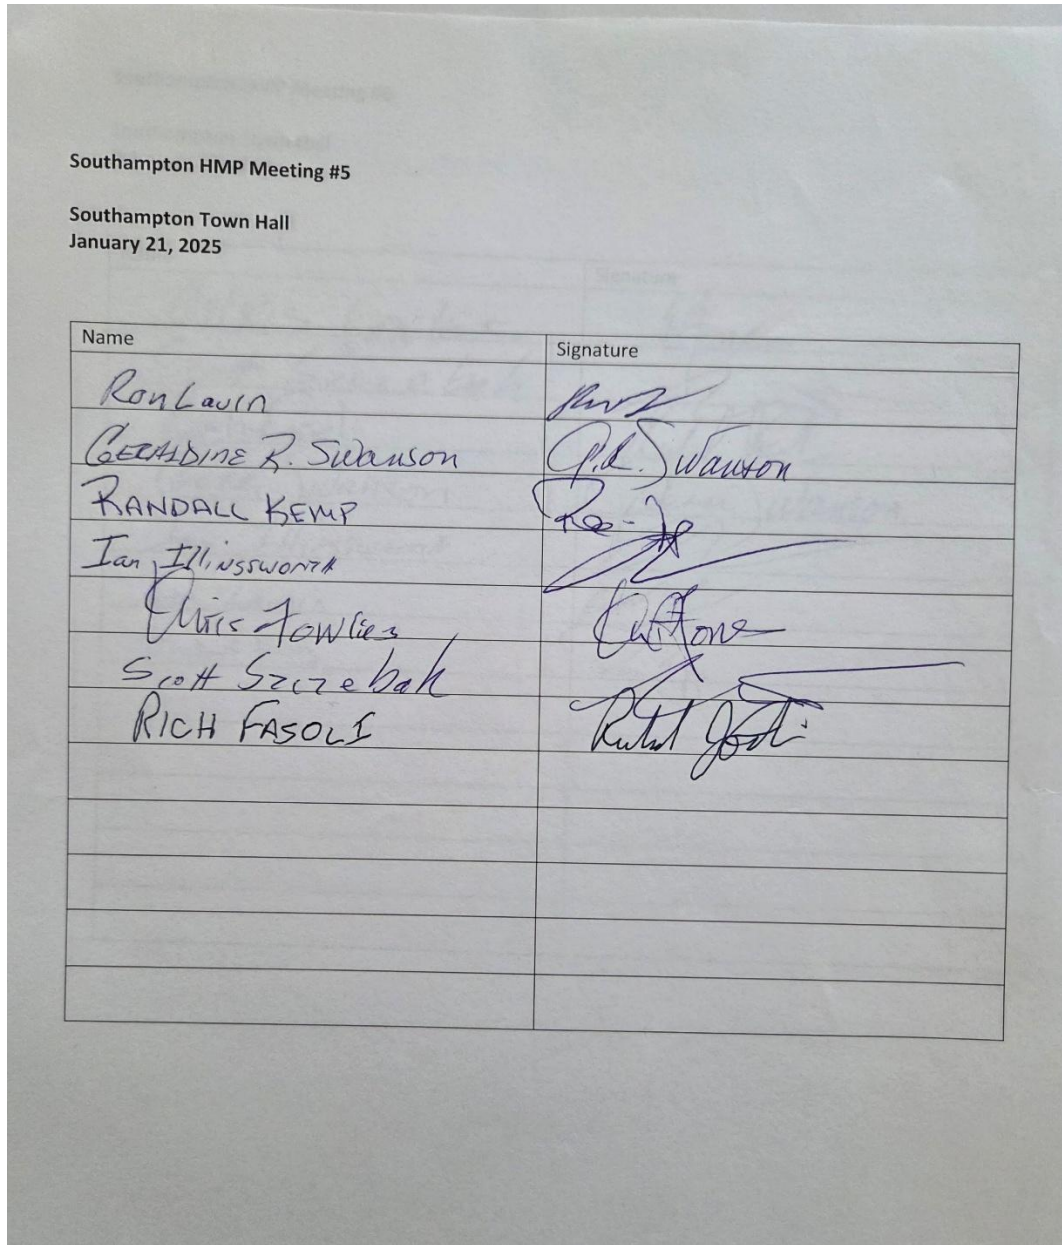 Southampton HMP Meeting #5
Southampton Town Hall
January 21, 2025
Name Signature
Ron Lavin
GERALDINE R. Swanson G.R. Swanson
RANDALL KEMP
Ian Illingsworth
Chris Fowles
Scott Szczebak
RICH FASOLI